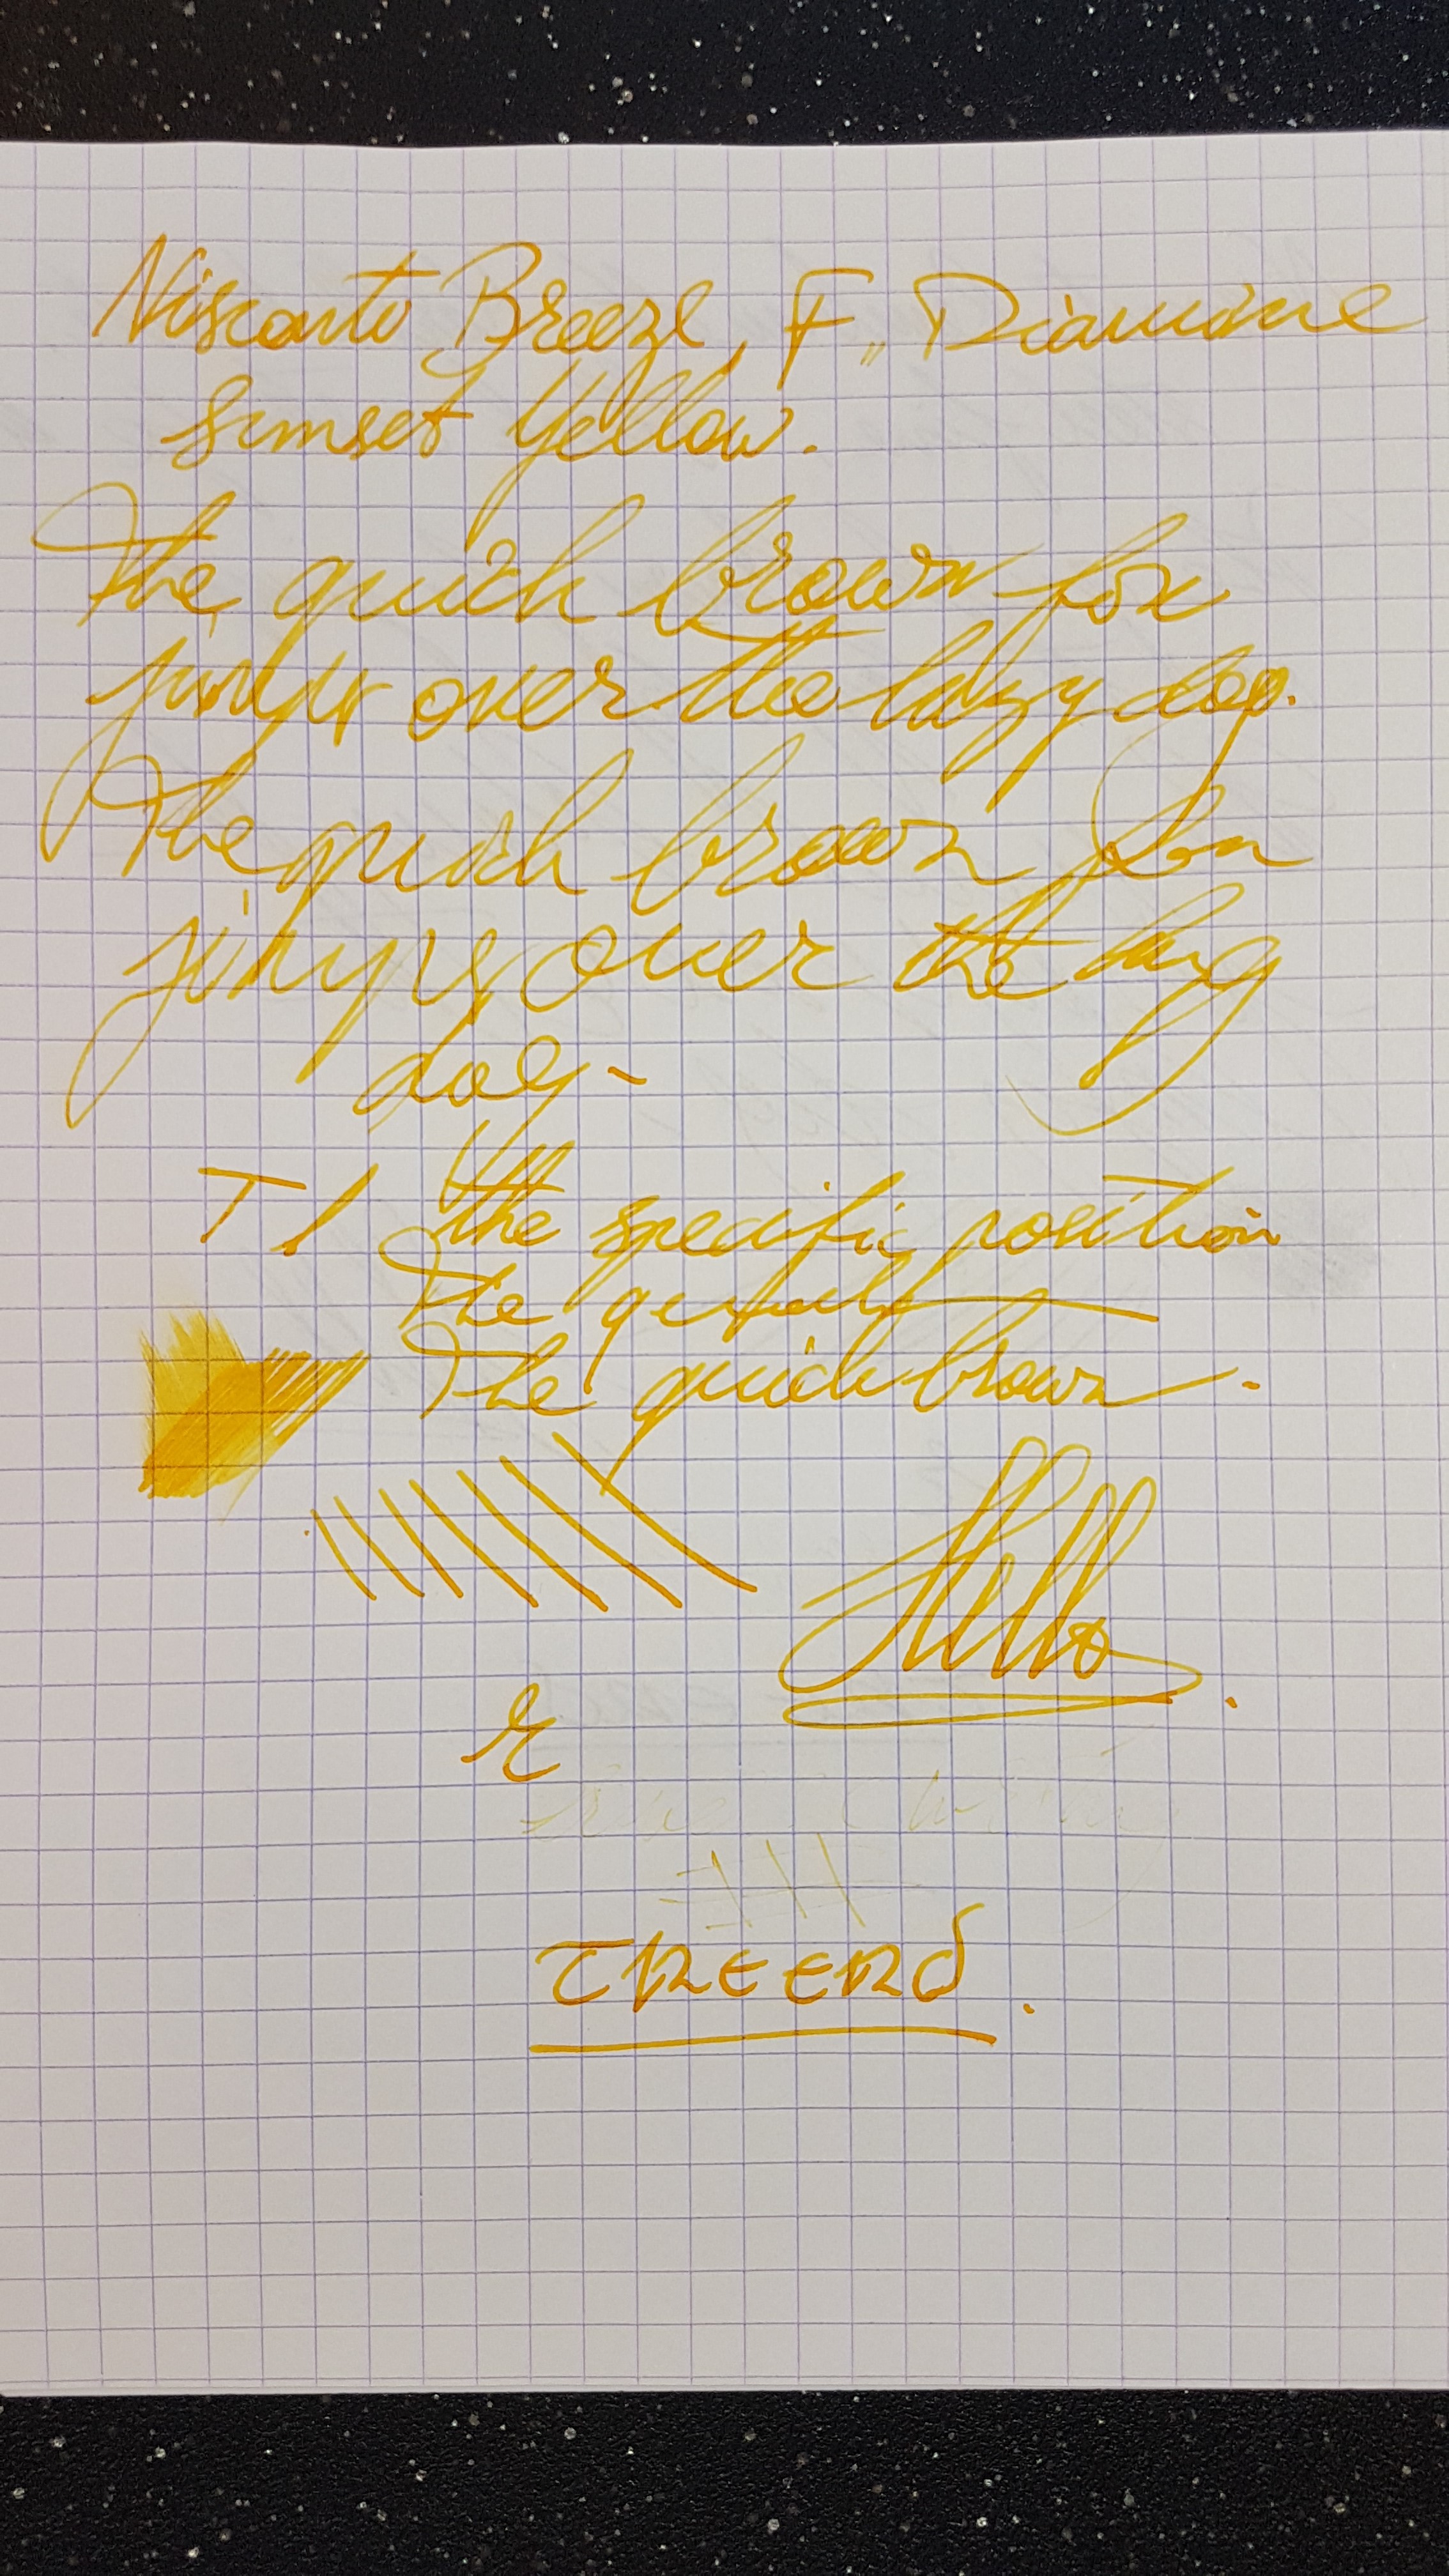 Visconti Breeze, F, Diamine
Sunset Yellow.
The quick brown fox
jumps over the lazy dog.
The quick brown fox
jumps over the lazy
dog-
T l the specific position
The
The quick brown -
Hello.
r